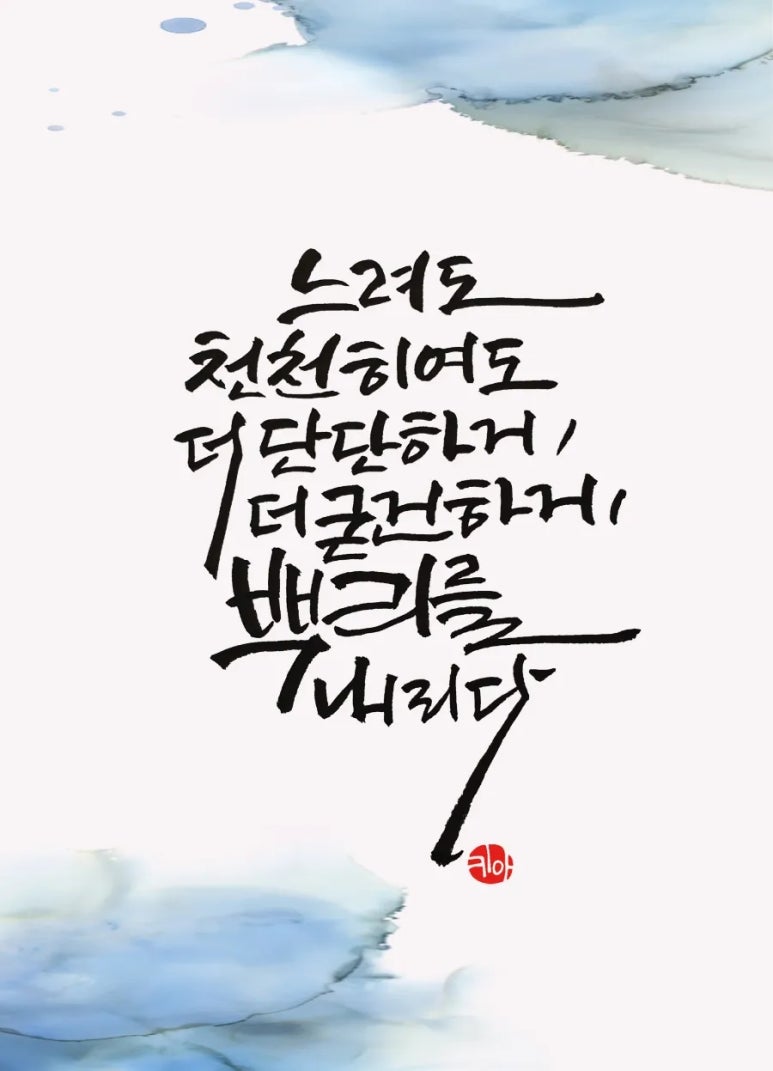 느려도
천천히여도
더 단단하게,
더 굳건하게,
뿌리를
내리다
키아